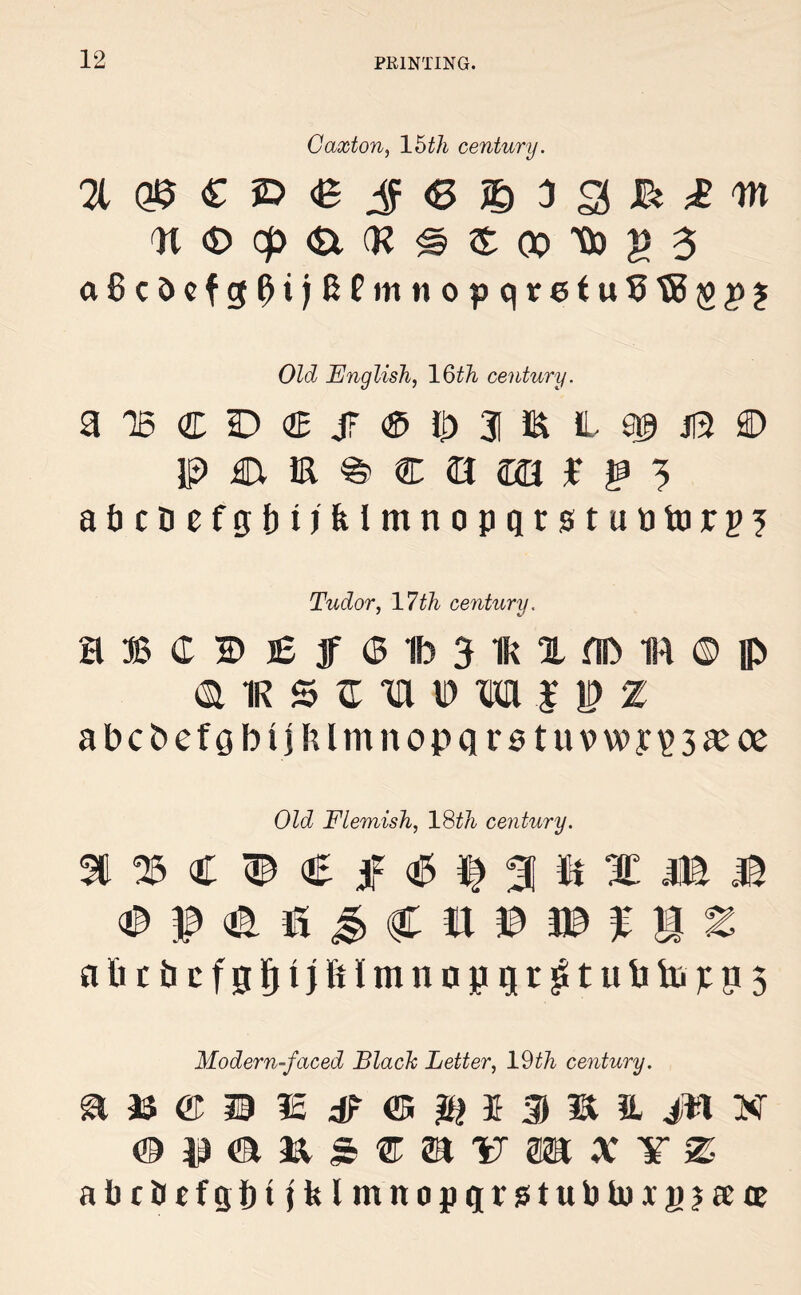 12 PRINTING.
Caxton, 15th century.
A B C D E F G H I J K L M
N O P Q R S T V W Y Z
a b c d e f g h i j k l m n o p q r s t u v w x y z
Old English, 16th century.
A B C D E F G H I K L M N O
P Q R S T U W X Y Z
a b c d e f g h i j k l m n o p q r s t u v w x y z
Tudor, 17th century.
A B C D E F G H I K L M N O P
Q R S T U V W X Y Z
a b c d e f g h i j k l m n o p q r s t u v w x y z æ œ
Old Flemish, 18th century.
A B C D E F G H I K L M N
O P Q R S T U V W X Y Z
a b c d e f g h i j k l m n o p q r s t u v w x y z
Modern-faced Black Letter, 19th century.
A B C D E F G H I J K L M N
O P Q R S T U V W X Y Z
a b c d e f g h i j k l m n o p q r s t u v w x y z æ œ